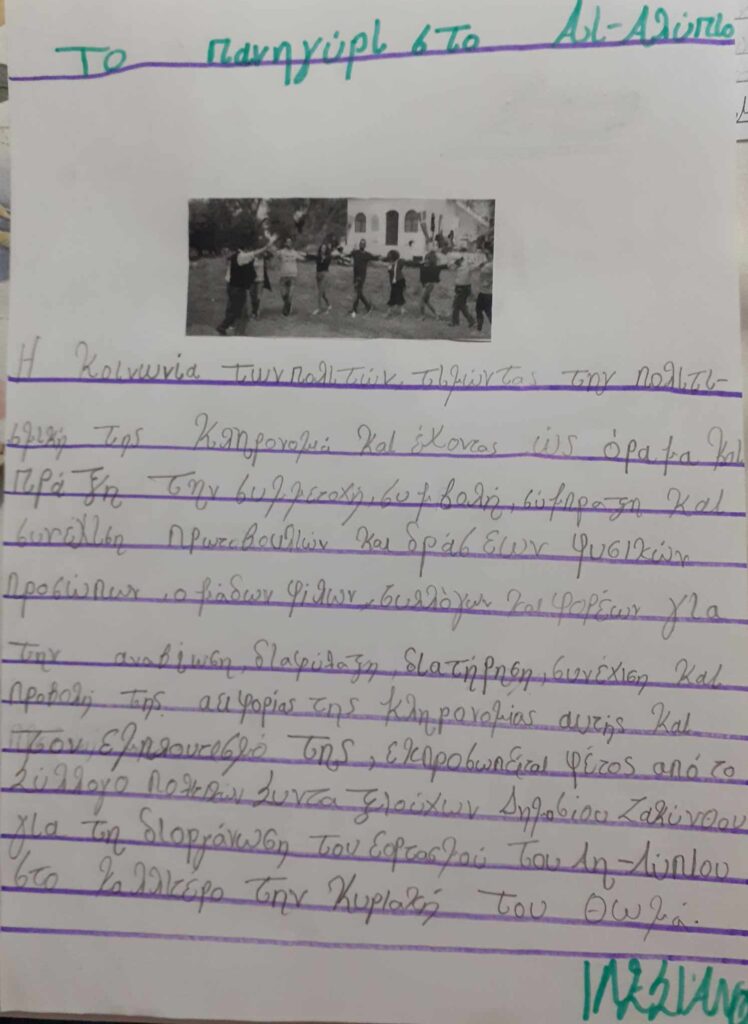 Το πανηγύρι στο Αι-Αλύπιο
Η Κοινωνία των πολιτών, τιμώντας την πολιτι-
σμική της Κληρονομιά Και έχοντας ως όραμα Και
πράξη την συμμετοχή, συμβολή, σύμπραξη Και
συνέχιση πρωτοβουλιών Και δράσεων φυσικών
προσώπων, ομάδων φίλων, συλλόγων Και φορέων για
την αναβίωση, διαφύλαξη, διατήρηση, συνέχιση Και
προβολή της αειφορίας της Κληρονομιας αυτής Και
τον εμπλουτισμό της, εκπροσωπείται φέτος από το
Σύλλογο Πολιτών Συνταξιούχων Δημοσίου Ζακύνθου
για τη διοργάνωση του εορτασμού του Λη-Λύπιου
στο Καλλιτέρο την Κυριακή του Θωμά.